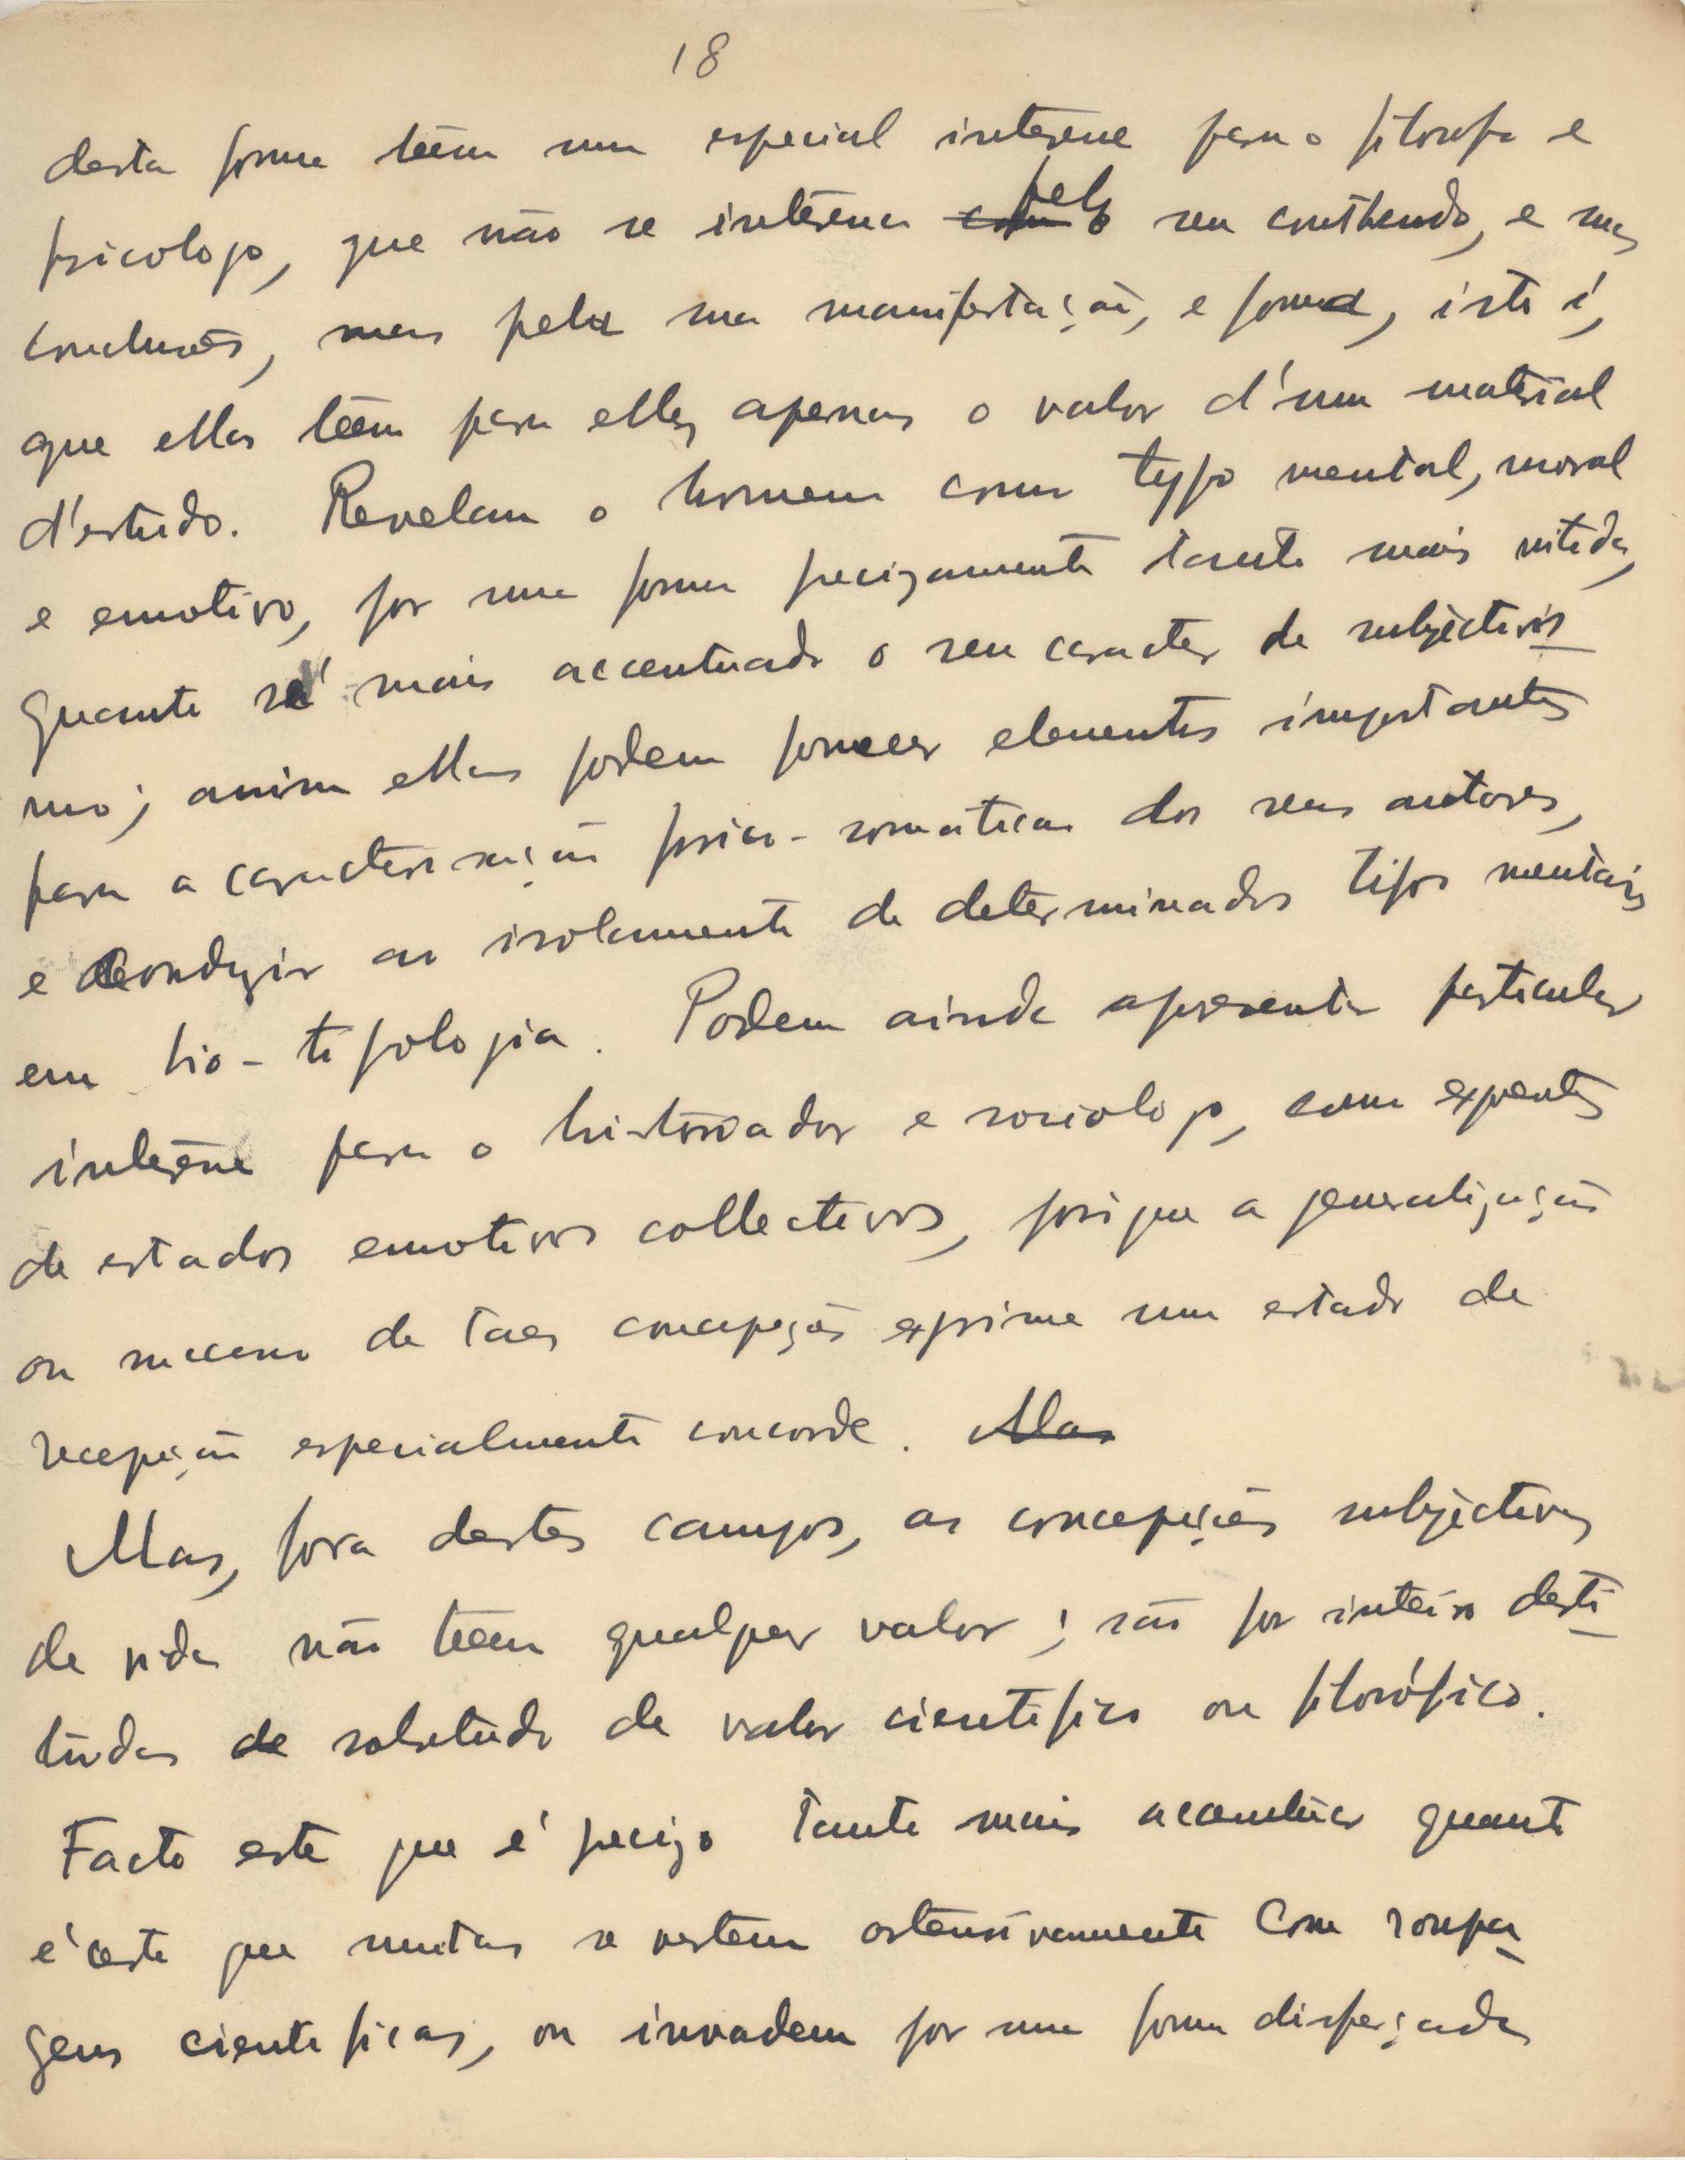 18
desta forma teem um especial interesse para o filosofo e
psicologo, que não se interessa pelo seu contheudo, e suas
conclusões, mas pela sua manifestação, e forma, isto é,
que ellas teem para elles apenas o valor d'um material
d'estudo. Revelam o homem como typo mental, moral
e emotivo, por uma forma precizamente tanto mais nitida,
quanto é mais accentuado o seu caracter de subjectivis-
mo; assim ellas podem fornecer elementos importantes
para a caracterisação psico-somatica dos seus autores,
e conduzir ao isolamento de determinados tipos mentais
em bio-tipologia. Podem ainda apresentar particular
interesse para o historiador e sociologo, como expoentes
de estados emotivos collectivos, porque a generalização
ou successo de taes concepções exprime um estado de
recepção especialmente concorde. Mas
Mas, fora destes campos, as concepções subjectivas
de vida não teem qualquer valor; são por inteiro desti-
tuidas de sobretudo de valor cientifico ou filosófico.
Facto este que é precizo tanto mais acentuar quanto
é certo que muitas se vestem ostensivamente com roupa-
gens cientificas, ou invadem por uma forma disfarçada